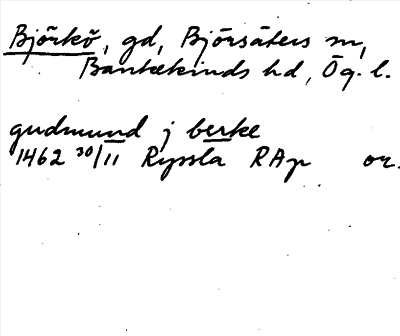 Björkö, gd, Björsäters sn,
Bankekinds hd, Ög. l.
gudmund j berke
1462 30/11 Ryssla RAp or.